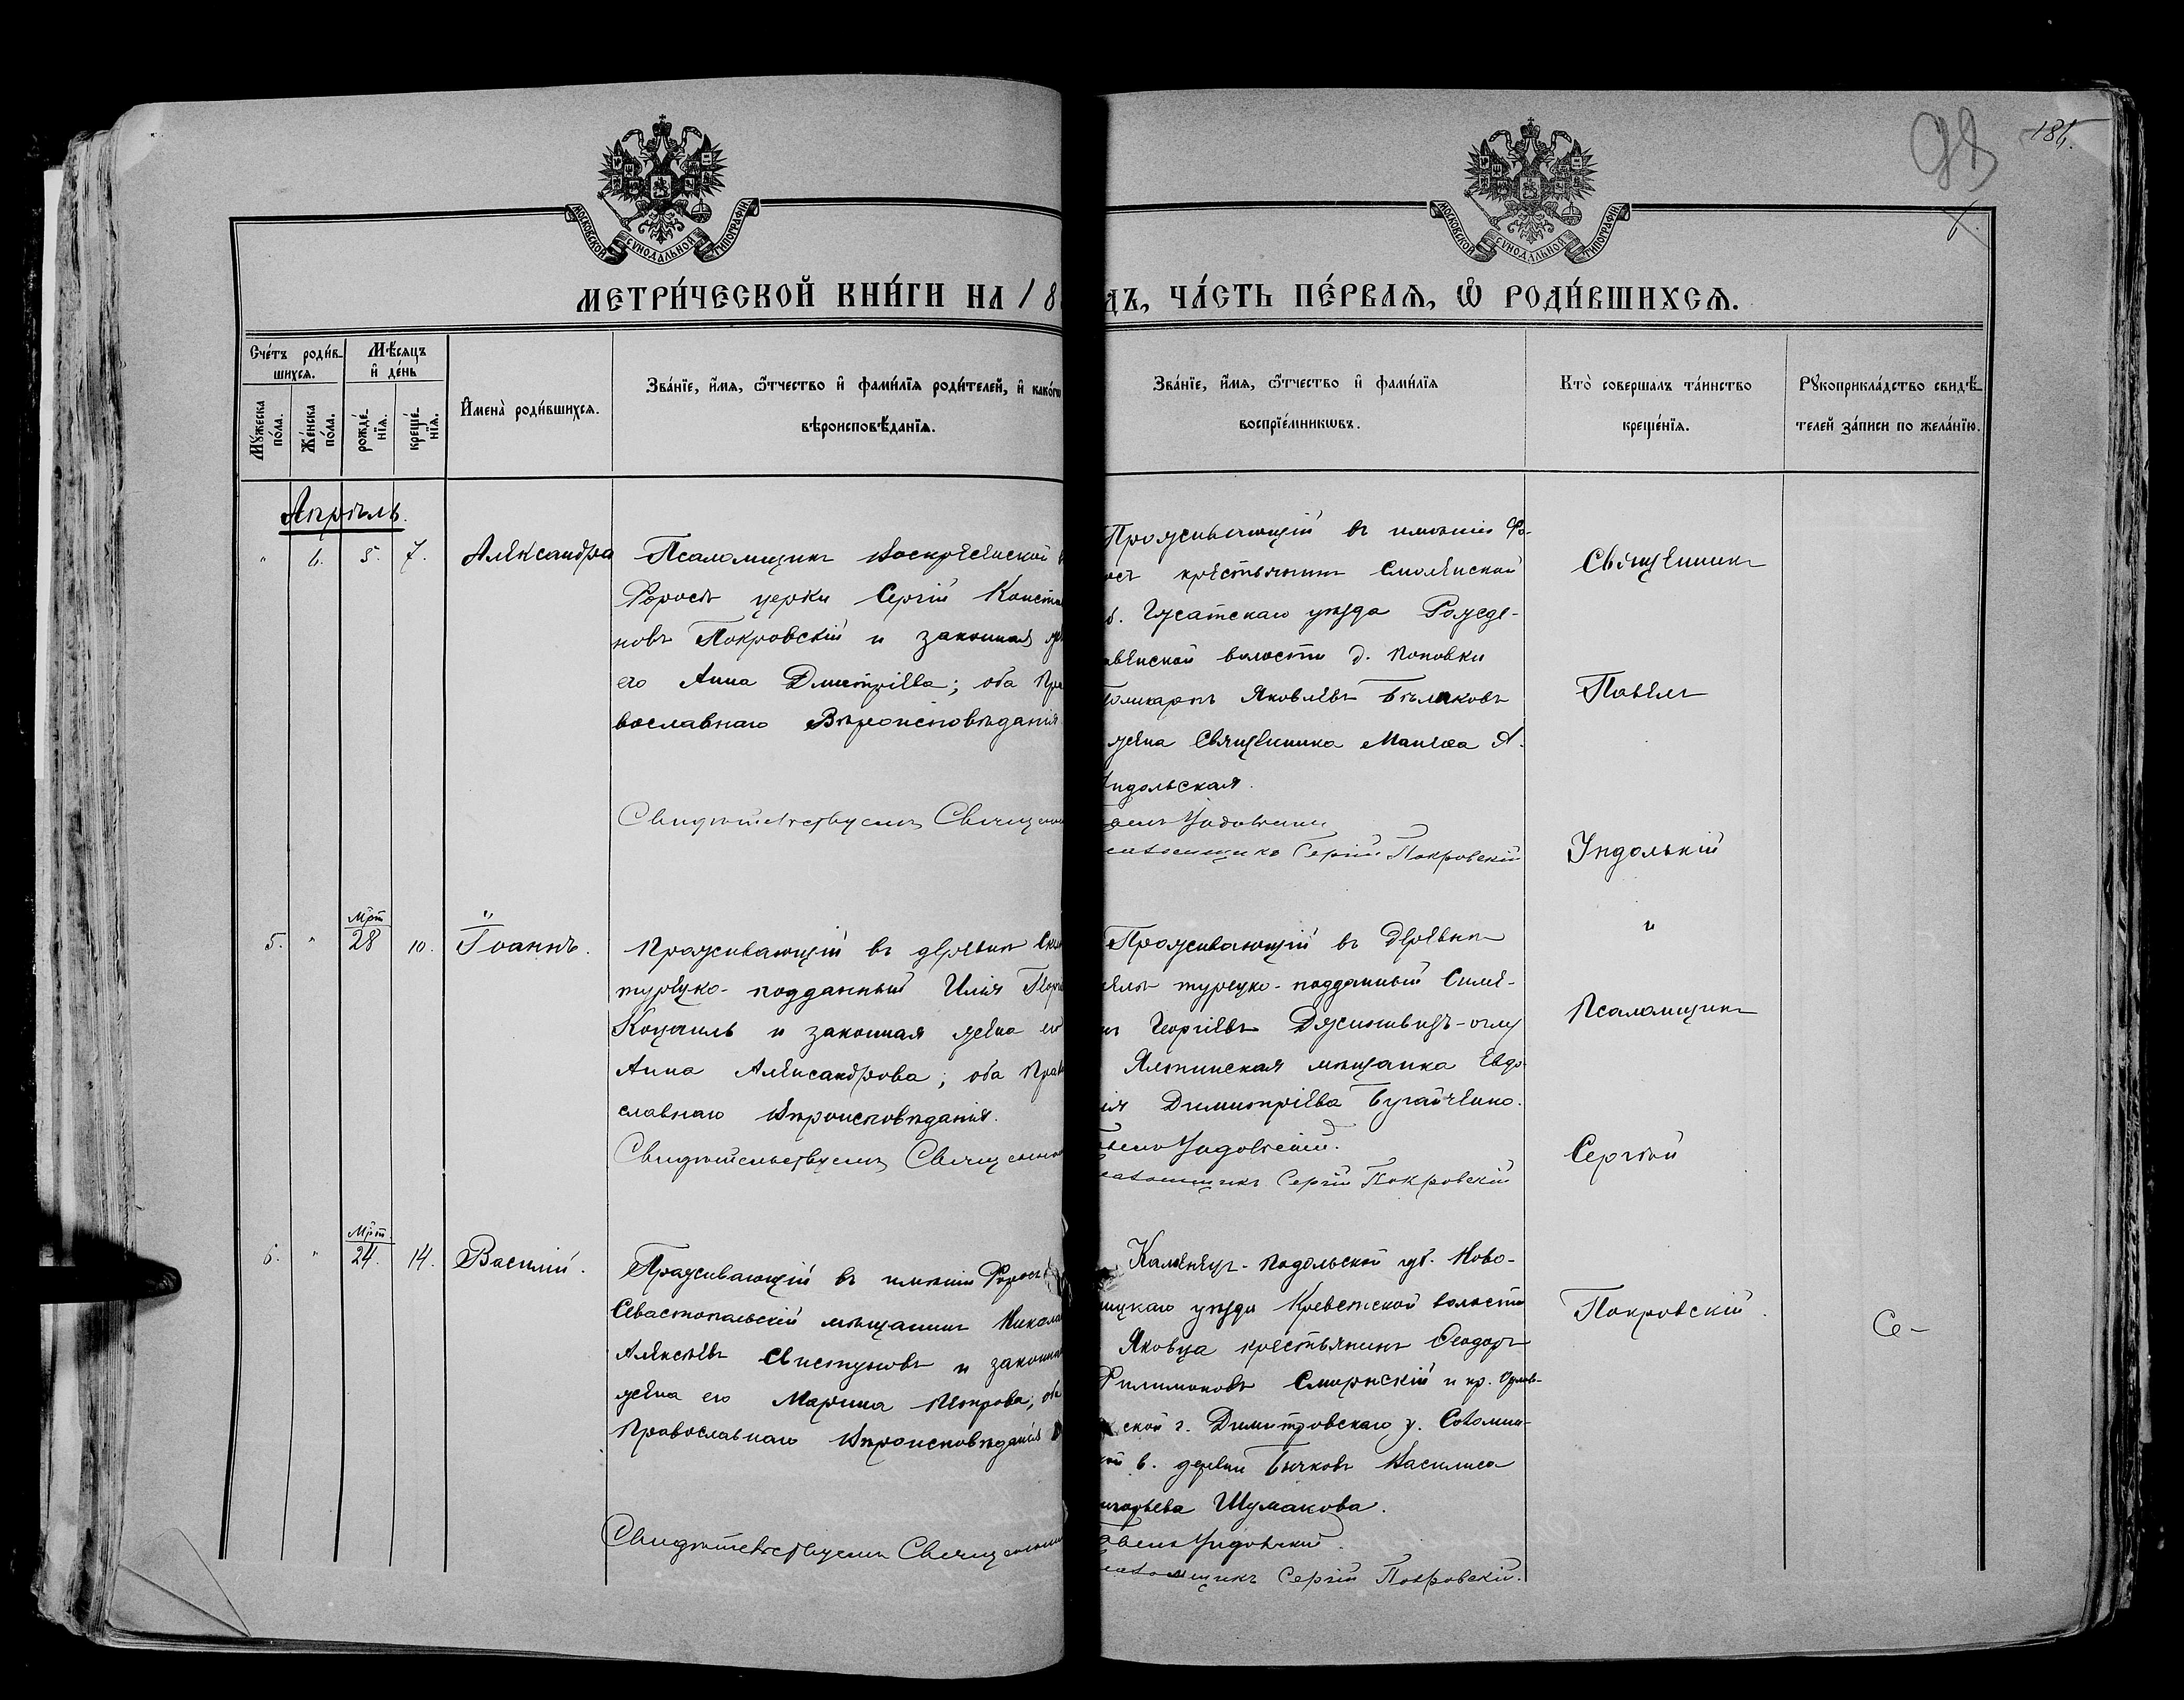 98
МОСКОВСКОЙ СѴНОДАЛЬНОЙ ТИПОГРАФІИ
МОСКОВСКОЙ СѴНОДАЛЬНОЙ ТИПОГРАФІИ
МЕТРИ́ЧЕСКОЙ КНИ́ГИ НА 18
ДЪ, ЧА́СТЬ ПЕ́РВАѦ, Ѡ҆ РОДИ́ВШИХСѦ.
Сче́тъ роди́в-
шихсѧ.
Мꙋ́жеска по́ла.
Же́нска по́ла.
Мѣ́сѧцъ
и҆ де́нь
рожде́-
нїѧ.
креще́-
нїѧ.
И҆мена̀ роди́вшихсѧ.
Зва́нїе, и҆́мѧ, ѻ҆́тчество и҆ фами́лїѧ роди́телей, и҆ како́гѡ
вѣроисповѣ́данїѧ.
Зва́нїе, и҆́мѧ, ѻ҆́тчество и҆ фами́лїѧ
воспрїе́мникѡвъ.
Кто̀ совершалъ та́инство
креще́нїѧ.
Рꙋкоприкла́дство свидѣ́-
телей за́писи по жела́нїю.
Апрѣль.
" 6. 5. 7. Александра
Псаломщикъ Воскресенской
Форосъ церки Сергій Конста
новъ Покровскій и законная же
его Анна Дмитріева; оба Пра
вославнаго Вѣроисповѣданія
Свидѣтельствуемъ Священ
Проживающій въ имѣніи Фо-
осъ крестьянинъ Смоленской
б. Гжатскаго уѣзда Рождe-
авенской волости д. Поповки
оликарпъ Яковлевъ Бѣляковъ
жена Священника Манеѳа А.
ндольская.
Ундольскій
саломщикъ Сергій Покровскій
Священникъ
Павелъ
Ундольскій
5. " Мрт 28 10. Іоаннъ.
Проживающій въ деревнѣ Ске
турецко-подданный Илія Геор
Коцаиль и законная жена его
Анна Александрова; оба Право
славнаго Вѣроисповѣданія.
Свидѣтельствуемъ Священн
Проживающій въ деревнѣ
еля турецко-подданный Симе-
нъ Георгіевъ
Ялтинская мѣщанка Евдо-
ія Димитріева Бугайченко.
авелъ Ундольскій.
саломщикъ Сергій Покровскій
и
Псаломщикъ
Сергѣй
Покровскій
6. " Мрт. 24. 14. Василій.
Проживающій въ имѣніи Форосъ
Севастопольскій мѣщанинъ Никола
Алексѣевъ Свистуновъ и законна
жена его Марина Петрова; оба
Православнаго Вѣроисповѣданія
Свидѣтельствуемъ Священн
Каменецъ-Подольской губ. Ново-
ицкаго уѣзда волости
Яковца крестьянинъ Ѳеодоръ
Филимоновъ и кр. Орлов-
ской г. Димитровскаго у. Соломин-
ой в. деревни Бычковъ Василиса
игорьева Шумакова.
авелъ Ундольскій.
саломщикъ Сергій Покровскій.
Се-